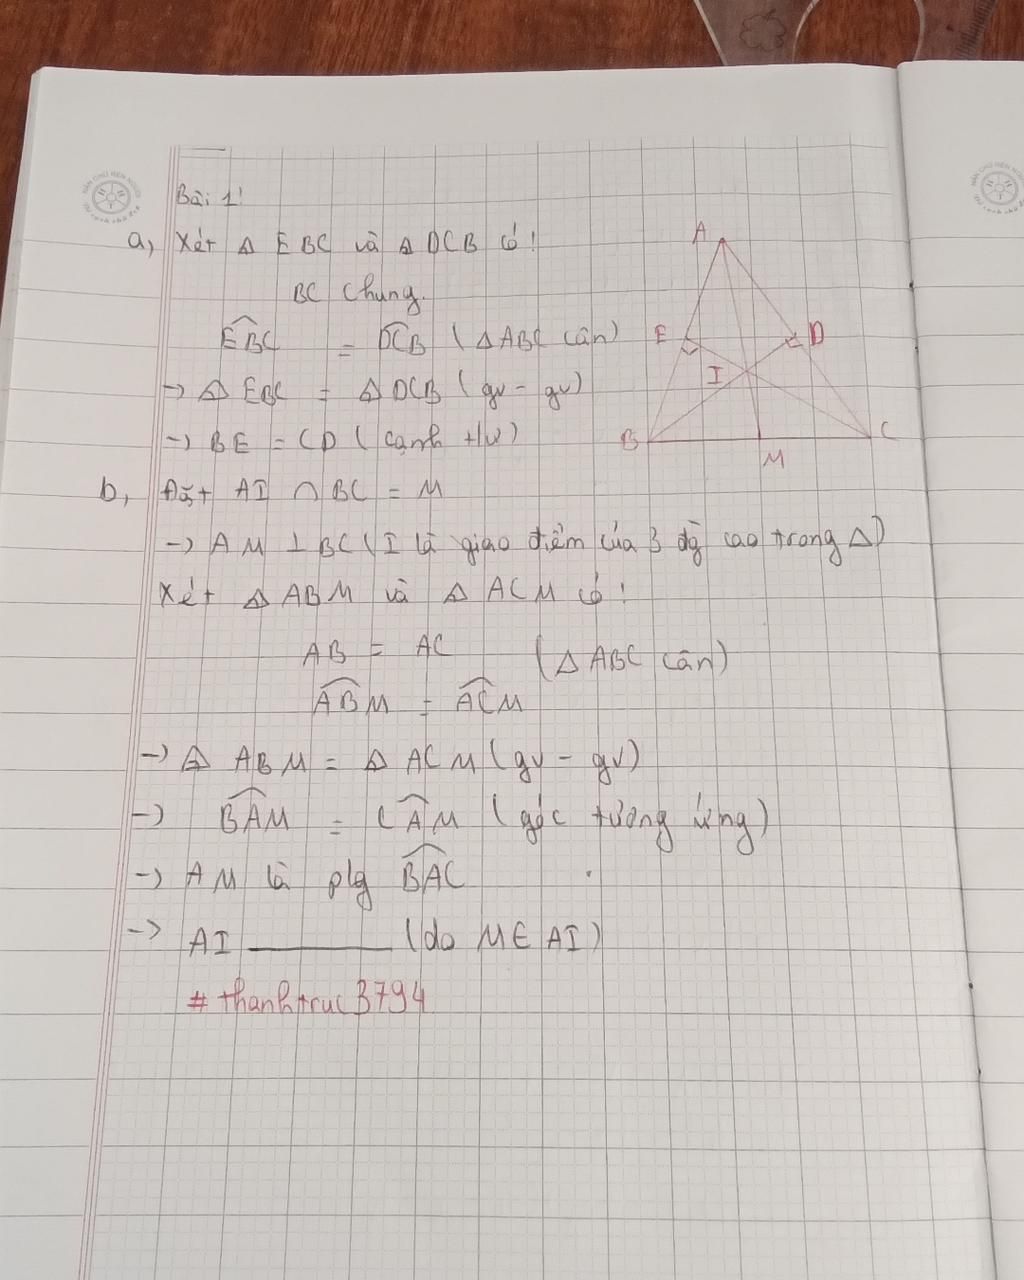 Bài 1:
a, Xét Δ EBC và Δ DCB có:
BC chung.
EBC = DCB (ΔABC cân)
-> Δ EBC = Δ DCB (gv - gv)
-> BE = CD (cạnh t/ư)
b, Đặt AI ∩ BC = M
-> AM ⊥ BC (I là giao điểm của 3 đg cao trong Δ)
Xét Δ ABM và Δ ACM có:
AB = AC (Δ ABC cân)
ABM = ACM
-> Δ ABM = Δ ACM (gv - gv)
-> BAM = CAM (góc tương ứng)
-> AM là plg BAC
-> AI ——— (do M∈ AI)
# thanhtruc3794
A
E D
I
B C
M